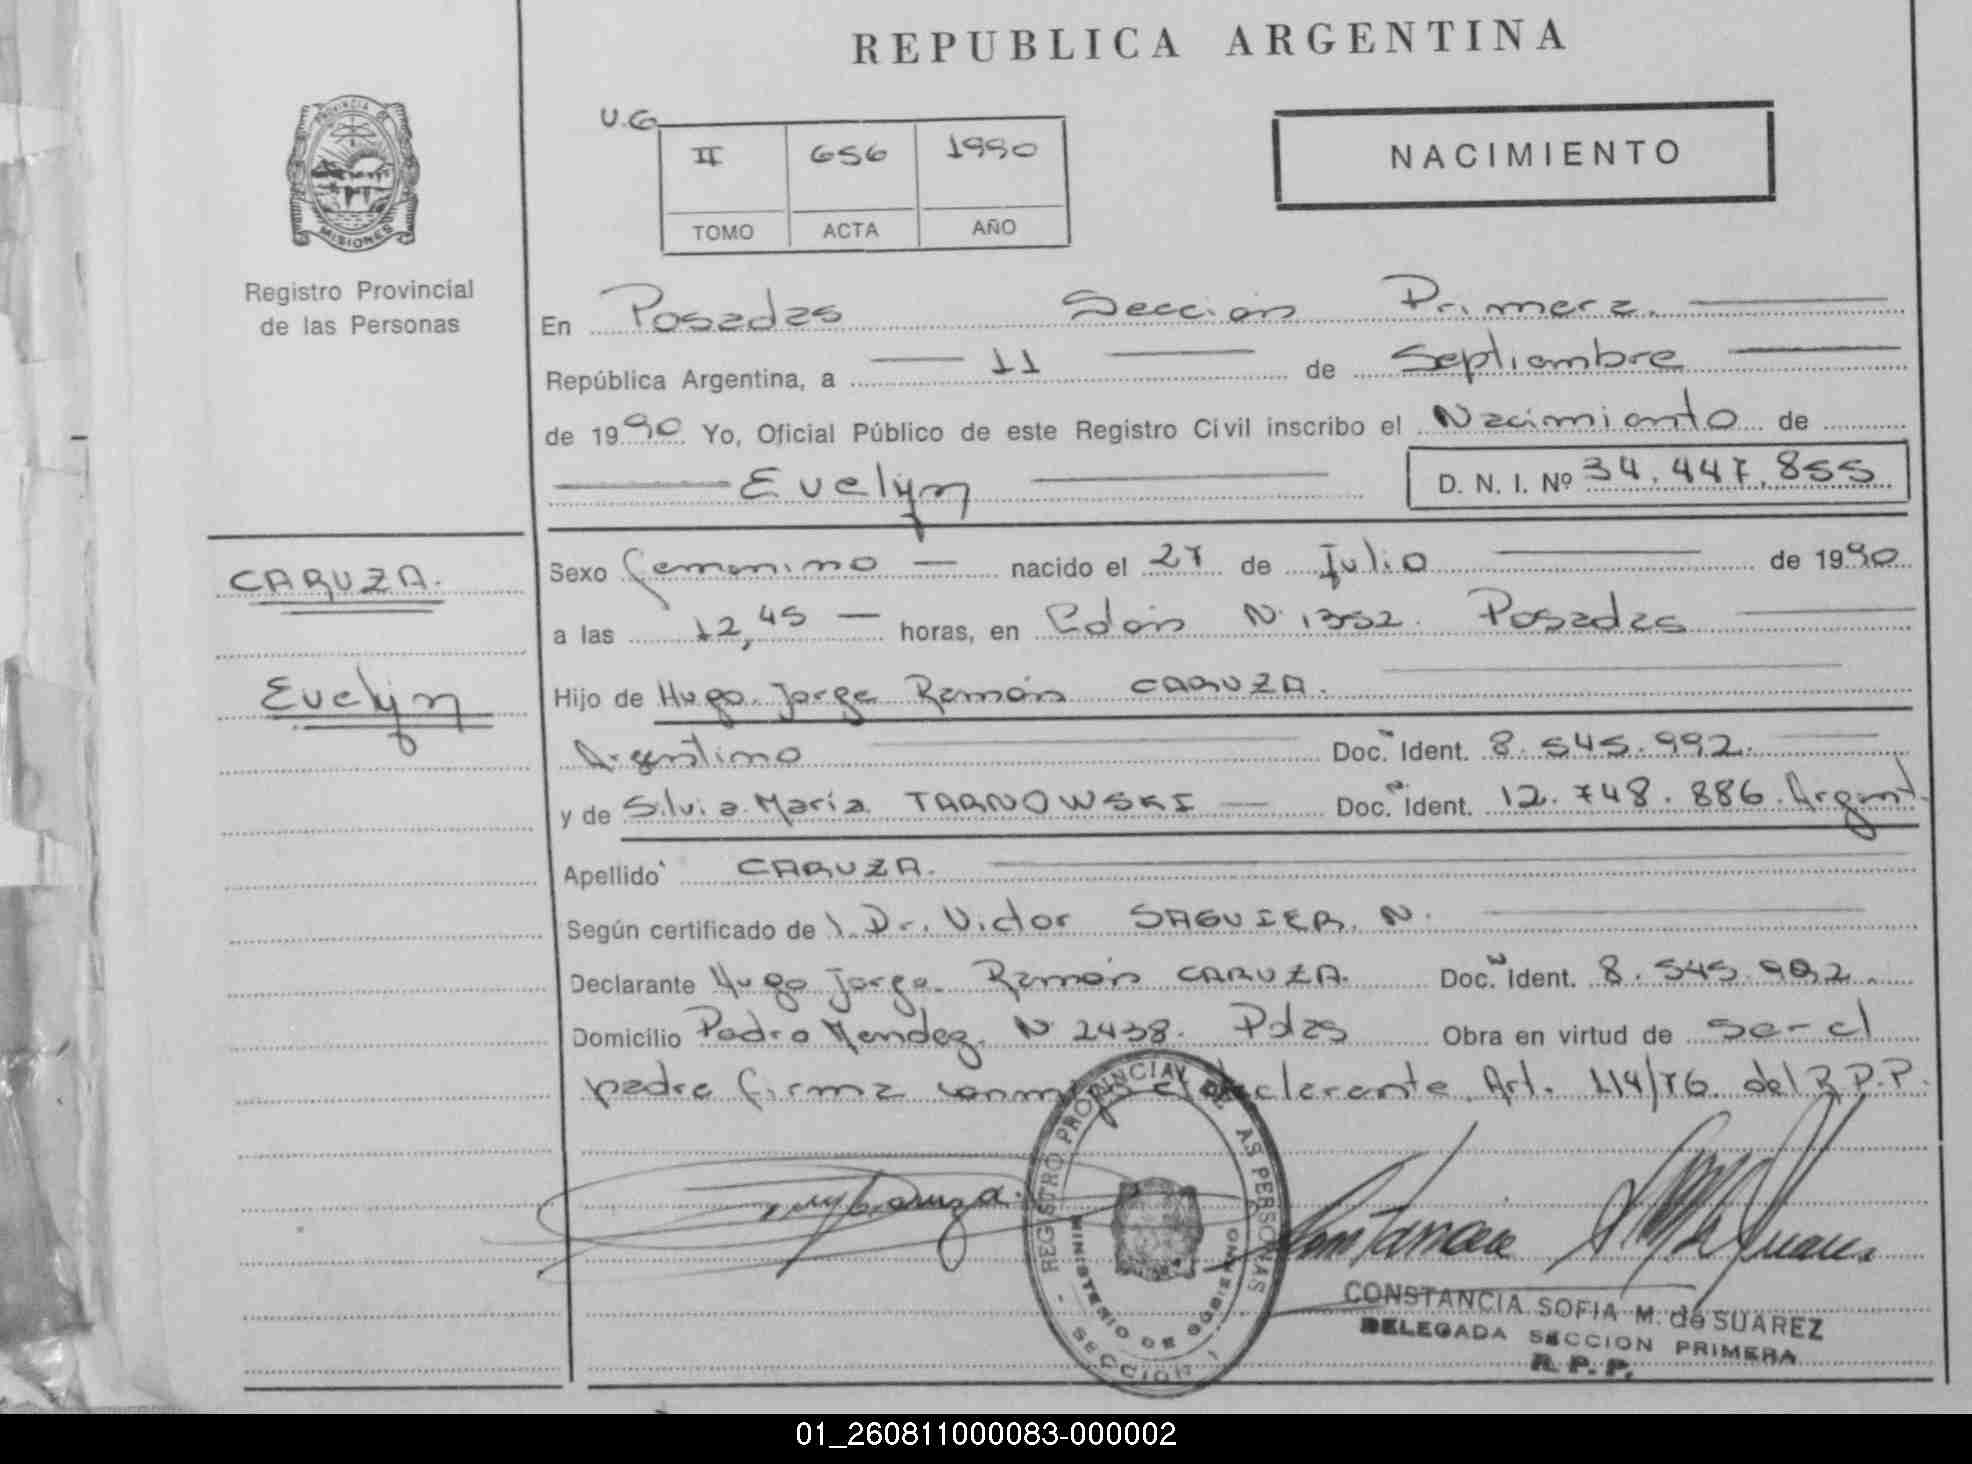 REPUBLICA ARGENTINA
PROVINCIA DE
MISIONES
Registro Provincial
de las Personas
U.G
II 656 1990
TOMO ACTA AÑO
NACIMIENTO
En Posadas Sección Primera.
República Argentina, a 11 de Septiembre
de 1990 Yo, Oficial Público de este Registro Civil inscribo el Nacimiento de
Evelyn
D. N. I. Nº 34.447.855
CARUZA.
Evelyn
Sexo femenino nacido el 27 de Julio de 1990
a las 12,45 horas, en Colón N. 1352. Posadas
Hijo de Hugo Jorge Ramón CARUZA.
Argentino Doc. Ident. 8.545.992.
y de Silvia María TARNOWSKI Doc. Ident. 12.748.886. Argent.
Apellido CARUZA.
Según certificado de l Dr. Victor SAGUIER. N.
Declarante Hugo Jorge Ramón CARUZA. Doc. Ident. 8.545.992.
Domicilio Pedro Mendez N 2438. Pdas Obra en virtud de ser el
padre firma conmigo el declarante. Art. 114/76. del R.P.P.
REGISTRO PROVINCIAL DE LAS PERSONAS
MINISTERIO DE GOBIERNO
SECCION 1
CONSTANCIA SOFIA M. de SUAREZ
DELEGADA SECCION PRIMERA
R. P. P.
01_260811000083-000002